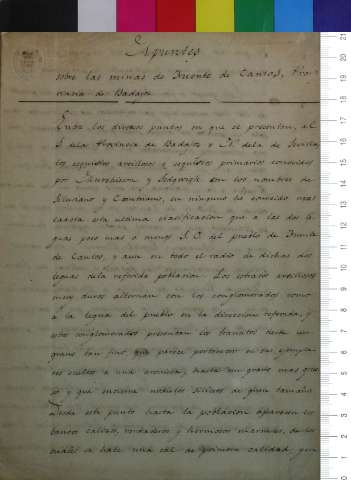 Apuntes
sobre las minas de Fuente de Cantos, Pro-
vincia de Badajoz
Entre los diversos puntos en que se presentan, al
S. de la Provincia de Badajoz y N. de la de Sevilla,
los esquistos arcillosos y esquistos primarios conocidos
por Murchison y Sedgwigk con los nombres de
Siluriano y Cambriano, en ninguno he conocido mas
esta ultima clasificacion que a las dos le-
guas poco mas o menos S.O. del pueblo de Fuente
de Cantos, y aun en todo el radio de dichas dos
leguas de la referida poblacion. Los estratos arcillosos
alternan con los conglomerados como
a la legua del pueblo en la direccion referida, y
estos conglomerados presentan los transitos hasta un
grano tan fino, que parece pertenecer
a una arenisca, hasta un grano mas grue-
so y que encierra nodulos siliceos de gran tamaño.
Desde este punto hasta la poblacion aparecen los
bancos calizos, verdaderos y hermosos marmoles, de los
cuales se hace una cal de primera calidad, pero